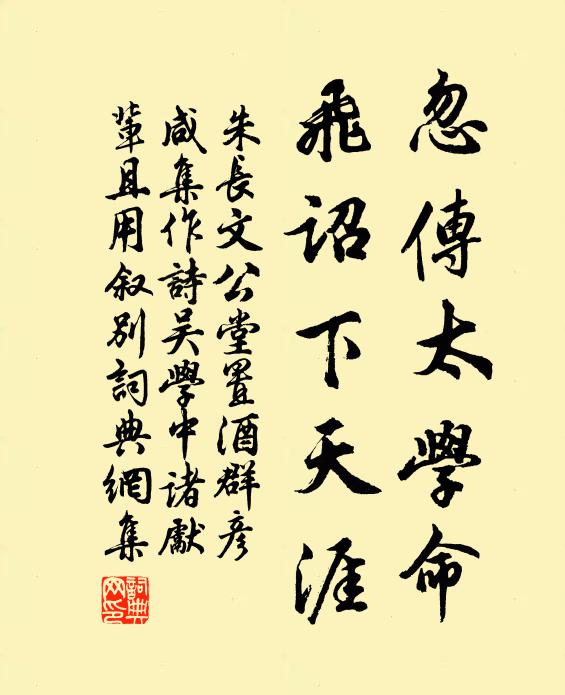 忽傳太學命
飛詔下天涯
朱長文公堂置酒群彥
咸集作詩吴學中諸獻
輩且用叙別詞典網集
詞典網印